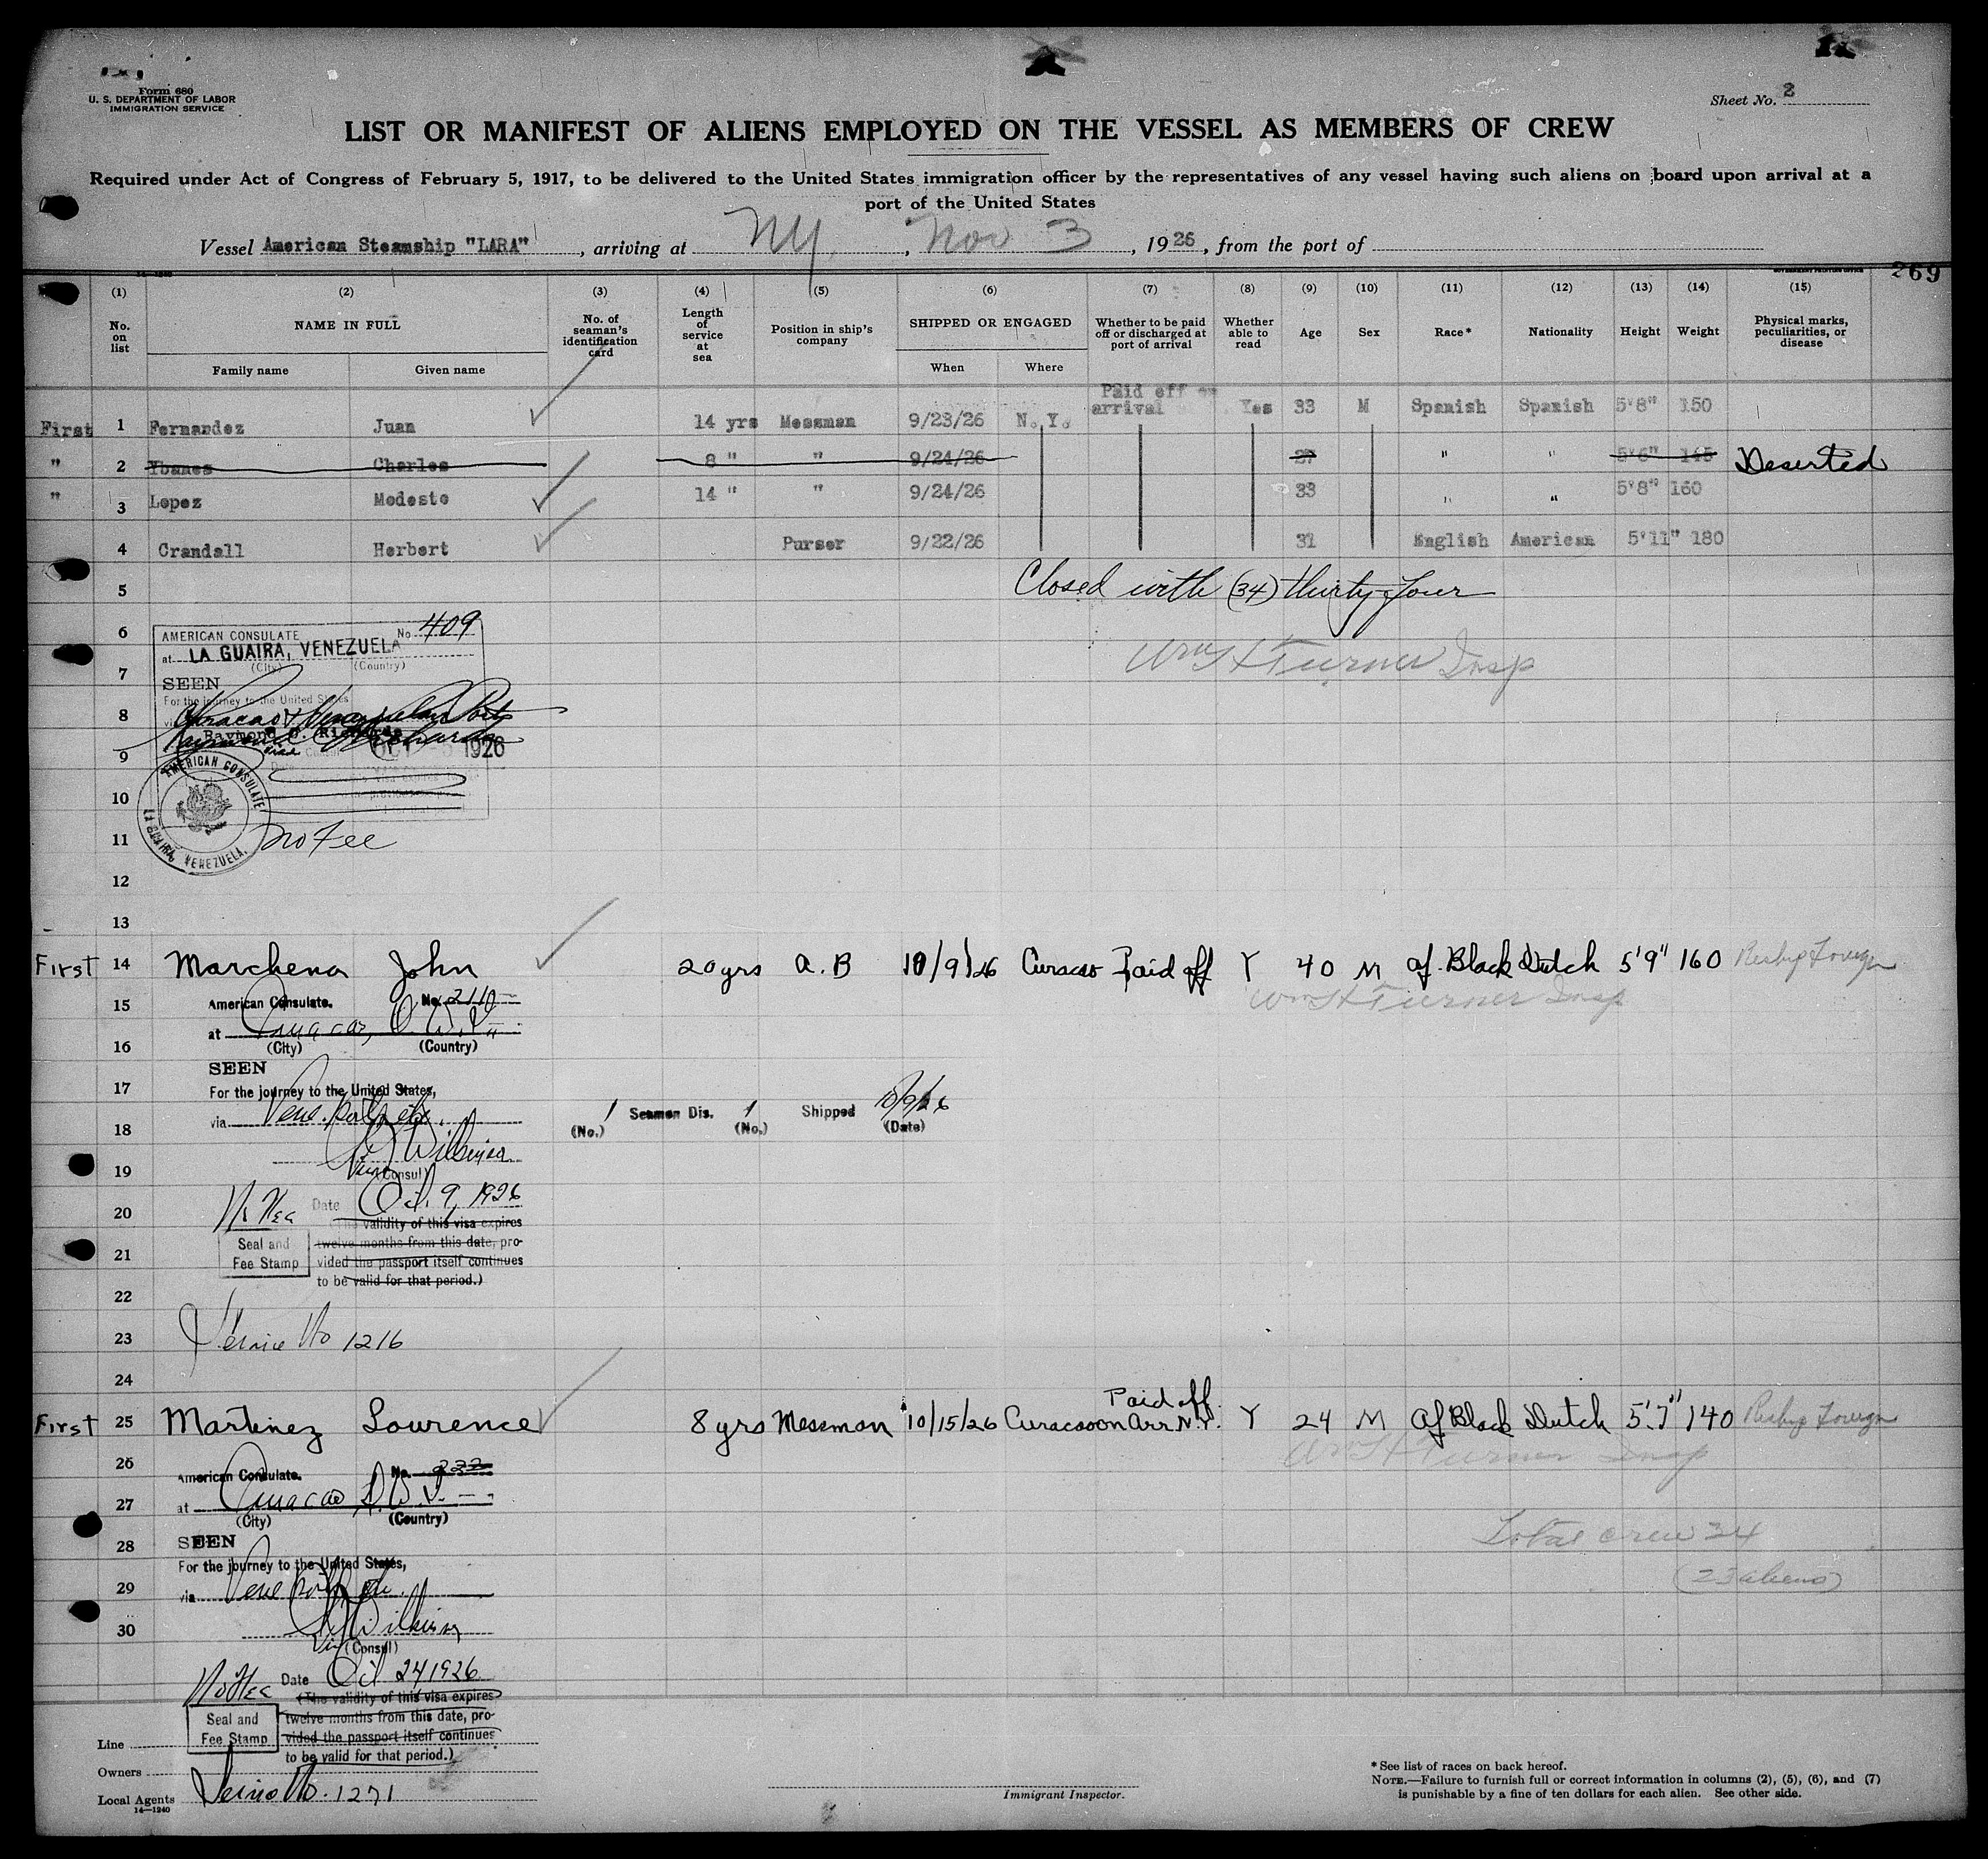 Form 680
U. S. DEPARTMENT OF LABOR
IMMIGRATION SERVICE
Sheet No. 2
LIST OR MANIFEST OF ALIENS EMPLOYED ON THE VESSEL AS MEMBERS OF CREW
Required under Act of Congress of February 5, 1917, to be delivered to the United States immigration officer by the representatives of any vessel having such aliens on board upon arrival at a
port of the United States
Vessel American Steamship "LARA", arriving at NY, Nov 3, 1926, from the port of
14—1240
GOVERNMENT PRINTING OFFICE
269
(1) (2) (3) (4) (5) (6) (7) (8) (9) (10) (11) (12) (13) (14) (15)
No. on list
NAME IN FULL
Family name
Given name
No. of seaman's identification card
Length of service at sea
Position in ship's company
SHIPPED OR ENGAGED
When
Where
Whether to be paid off or discharged at port of arrival
Whether able to read
Age
Sex
Race*
Nationality
Height
Weight
Physical marks, peculiarities, or disease
First 1 Fernandez Juan 14 yrs Messman 9/23/26 N.Y. Paid off on arrival Yes 33 M Spanish Spanish 5'8" 150
" 2 Ybanes Charles 8 " " 9/24/26 27 " " 5'6" 145 Deserted
" 3 Lopez Modesto 14 " " 9/24/26 33 " " 5'8" 160
4 Crandall Herbert Purser 9/22/26 31 English American 5'11" 180
5 Closed with (34) thirty four
6
AMERICAN CONSULATE No. 409
at LA GUAIRA, VENEZUELA
(City) (Country)
7 Wm H Turner Insp
SEEN
For the journey to the United States
8
via Curacao & Venezuelan Ports
Raymond C. Richards
9
1926
10
AMERICAN CONSULATE
LA GUAIRA, VENEZUELA.
11 No Fee
12
13
First 14 Marchena John 20 yrs A.B 10/9/26 Curacao Paid off Y 40 M Af. Black Dutch 5'9" 160
15 American Consulate. No. 211
Wm H Turner Insp
at Curacao, D.W.I.
16 (City) (Country)
SEEN
17 For the journey to the United States,
via Vene. Ports etc.
18
(No.) 1 Seamen Dis. 1 (No.) Shipped 10/9/26 (Date)
Wilkinson
19 Vice (Consul)
20 No Fee Date Oct. 9, 1926
(The validity of this visa expires
21 Seal and Fee Stamp
twelve months from this date, pro-
vided the passport itself continues
to be valid for that period.)
22
23 Service No 1216
24
First 25 Martinez Lourence 8 yrs Messman 10/15/26 Curacao Paid off on arr N.Y. Y 24 M Af Black Dutch 5'7" 140
26 American Consulate. No. 222
Wm H Turner Insp
27 at Curacao D.W.I.
(City) (Country)
28 SEEN
Total crew 34
For the journey to the United States,
29 via Vene Ports etc.
(23 aliens)
30 Wilkinson
Vice (Consul)
No Fee Date Oct 24 1926
(The validity of this visa expires
Seal and Fee Stamp
twelve months from this date, pro-
vided the passport itself continues
to be valid for that period.)
Line
Owners
Local Agents
Service No. 1271
14—1240
Immigrant Inspector.
* See list of races on back hereof.
NOTE.—Failure to furnish full or correct information in columns (2), (5), (6), and (7)
is punishable by a fine of ten dollars for each alien. See other side.